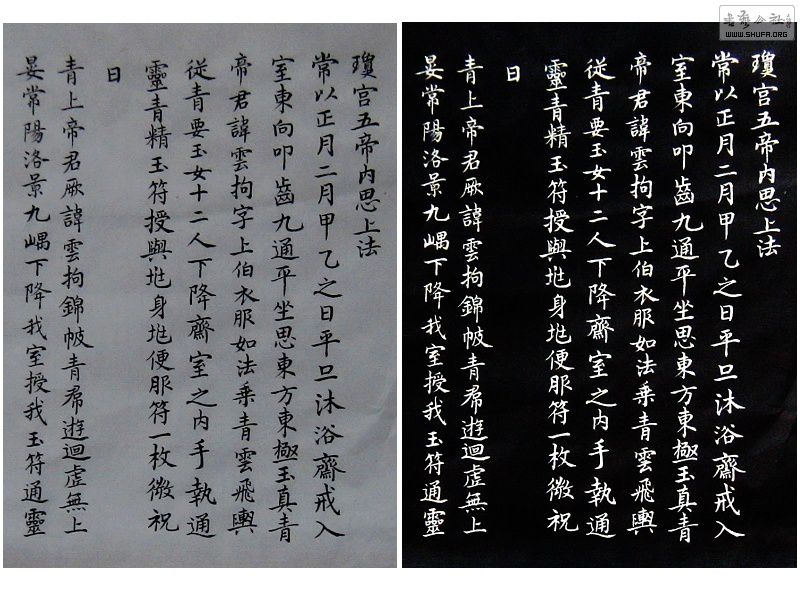 瓊宮五帝內思上法
常以正月二月甲乙之日平旦沐浴齋戒入
室東向叩齒九通平坐思東方東極玉真青
帝君諱雲拘字上伯衣服如法乘青雲飛輿
從青要玉女十二人下降齋室之內手執通
靈青精玉符授與兆身兆便服符一枚微祝
曰
青上帝君厥諱雲拘錦帔青帬遊迴虛無上
晏常陽洛景九嵎下降我室授我玉符通靈
瓊宮五帝內思上法
常以正月二月甲乙之日平旦沐浴齋戒入
室東向叩齒九通平坐思東方東極玉真青
帝君諱雲拘字上伯衣服如法乘青雲飛輿
從青要玉女十二人下降齋室之內手執通
靈青精玉符授與兆身兆便服符一枚微祝
曰
青上帝君厥諱雲拘錦帔青帬遊迴虛無上
晏常陽洛景九嵎下降我室授我玉符通靈
WWW.SHUFA.ORG